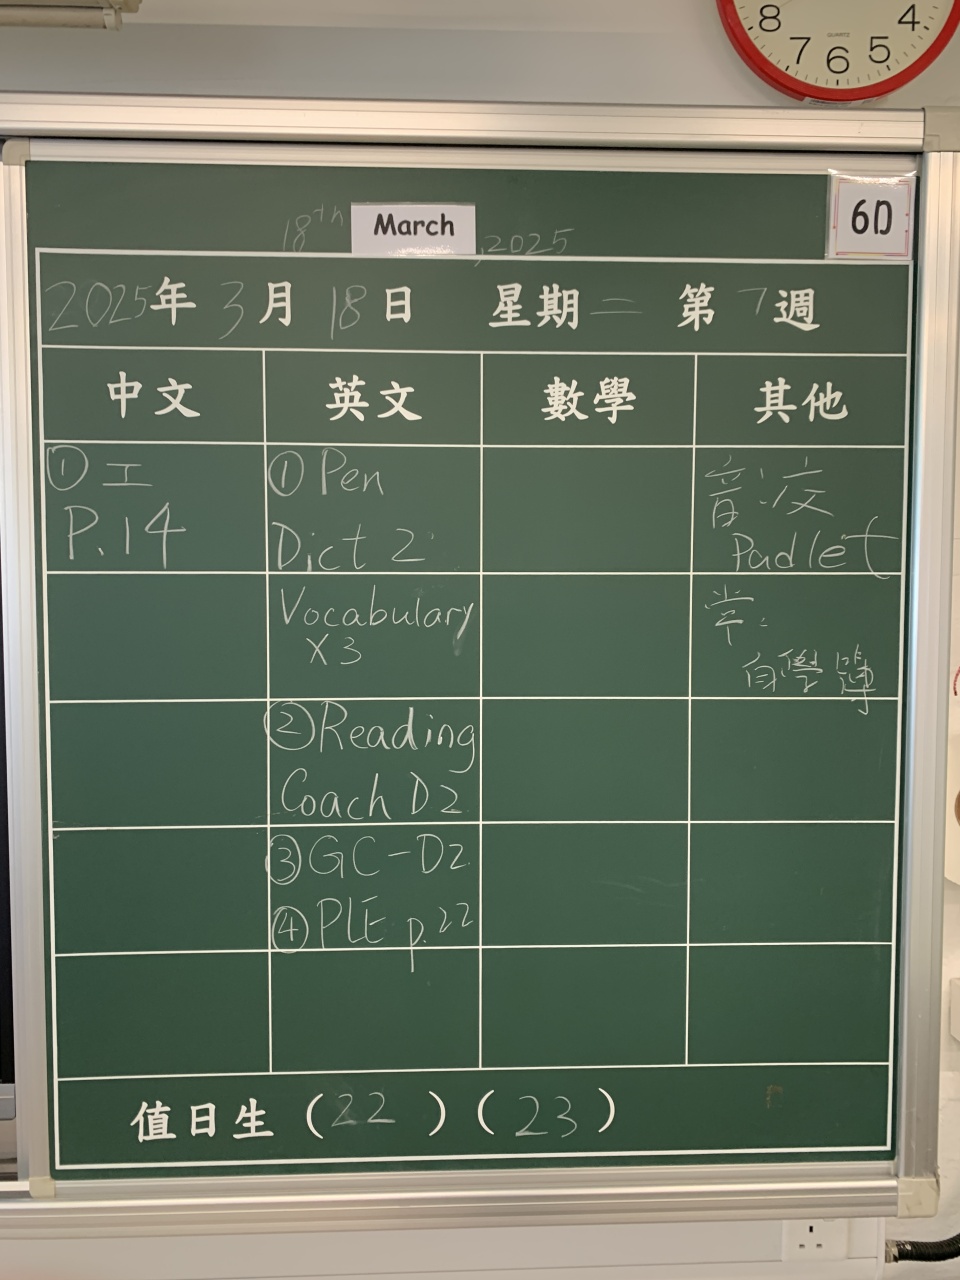 8 7 6 5 4
QUARTZ
18th March, 2025
6D
2025年 3月 18日 星期二 第7週
中文 英文 數學 其他
① 工
P.14
① Pen
Dict 2
Vocabulary
X3
② Reading
Coach D2
③ GC-D2
④ PLE p.22
音:
Padlet
常:
自學簿
值日生 (22) (23)